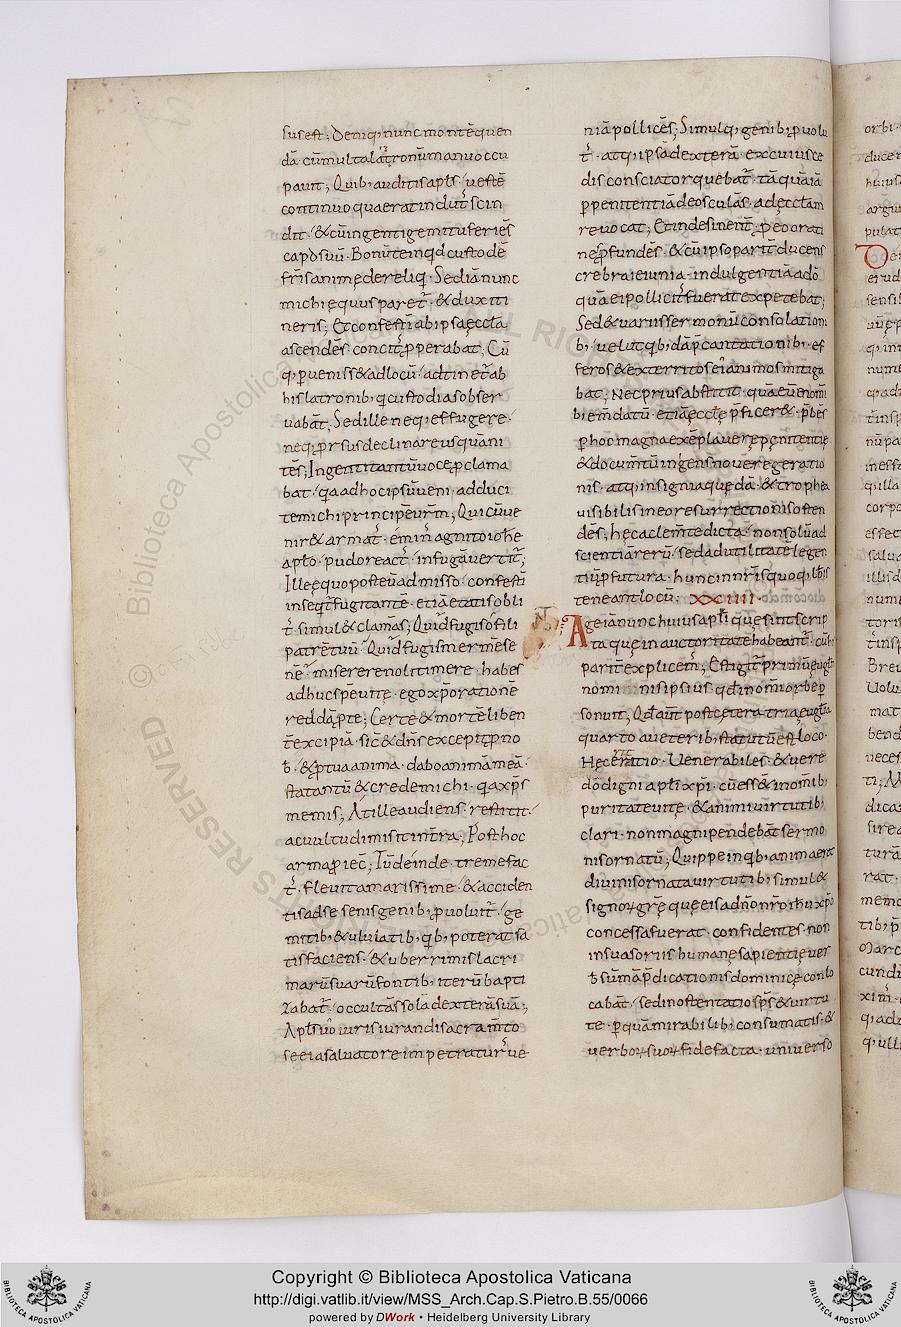 sus est; Deniq; nunc montē quen
dā cū multa latronū manu occu
paun̄t; Quib; auditis apl̄s uestē
continuo qua erat indut᷒ scin
dit & cū ingenti gemitu feriēs
capđ suū. Bonū te inq̄d custodē
fr̄is animę dereliq. Sed iā nunc
michi equus paret᷒. & dux iti
neris; Et confestī ab ipsa eccl̄a
ascendēs concit᷒ pperabat; Cū
q; puenisset & ad locū adtinet᷒ ab
his latronib; q custodias obser
uabāt; Sed ille neq; effugere
neq; prsus declinare usquā ni
tēs; Ingenti tantū uoce pclama
bat qa ad hoc ipsū ueni adduci
te michi principē urm̄; Qui cū ue
niret armat᷒ eminꝰ agnito ioh̄e
aplo pudore act᷒ in fugā uertit᷒;
Ille equo post eū admisso confestī
inseqt᷒ fugitantē etiā etatis obli
t᷒ simul & clamās; Quid fugis o fili
patrē tuū Quid fugis inermē se
nē miserere noli timere habes
adhuc spē uitę. ego xp̄o rationē
reddā p te; Certe & mortē liben
t̄ excipiā sic & dn̄s excepit p no
b᷒ & p tua anima dabo animā meā
sta tantū & crede michi qa xp̄s
me misit; At ille audiens restitit
ac uultū dimisit in terrā; Post hoc
arma piec̄; Tūdeinde tremefac
t᷒ fleuit amarissime & acciden
tis ad se senis genib; puoluit᷒ ge
mitib; & ululatib; qb; poterat sa
tisfaciens & uberrimis lacri
marū suarū fontib; iterū bapti
zabat᷒ occultās solā dexterā suā;
Apls uo iuris iurandi sacramto
se ei a saluatore impetratur᷒ ue
niā pollicēs; Simulq; genib; puolu
t᷒ atq; ipsā dexterā ex cuius ce
dis conscia torquebat᷒. tāquā iā
p penitentiā deosculās ad eccl̄am
reuocat; Et indesinent᷒ p eo orati
nes fundēs & cū ipso parit᷒ ducens
crebra ieiunia indulgentiā a dō
quā ei pollicit᷒ fuerat expetebat;
Sed & uariis sermonū consolationi
b; uelut qb;dā pcantationib; ef
feros & exterritos ei animos mitiga
bat; Nec prius abstitit quā eū enomi
b; emdatū etiā eccl̄ę pficeret pbēs
p hoc magna exēpla uere pęnitentię
& documtū ingens nouę regeratio
nis atq; insignia quędā & trophea
uisibilis in eo resurrectionis osten
dēs; hęc a clemte dicta non solū ad
scientiā rerū sed ad utilitatē legen
tiū pfutura hunc in nr̄is quoq; libris
teneant locū; XXIIII
Age iā nunc huius apl̄i quę sint scrip
ta quę in auctoritate habeant᷒ cū
parit᷒ explicem᷒; Est igit᷒ primū eugl̄i
nomi nis ipsius qd̄ in om̄i orbe p
sonuit; Qd aūt post cętera tria eugl̄ia
quarto a ueterib; statutū est loco
Hęc e ratio. Uenerabiles & uere
dō digni apl̄i xp̄i cū essent in om̄ib;
puritate uitę & animi uirtutib;
clari non magni pendebāt sermo
nis ornatū; Quippe in qb; anima erat
diuinis ornata uirtutib; simul &
signoꝝ gr̄ę quę eis a dn̄o nr̄o ih̄u xp̄o
concessa fuerat confidentes non
in suasoriis humanę sapientię uer
b᷒ sūmā pdicationis dominicę conlo
cabāt sed in ostentatio sp̄s & uirtu
te pquā mirabilib; consumatis &
uerboꝝ suoꝝ fide facta uniuerso
Copyright © Biblioteca Apostolica Vaticana
http://digi.vatlib.it/view/MSS_Arch.Cap.S.Pietro.B.55/0066
powered by DWork • Heidelberg University Library